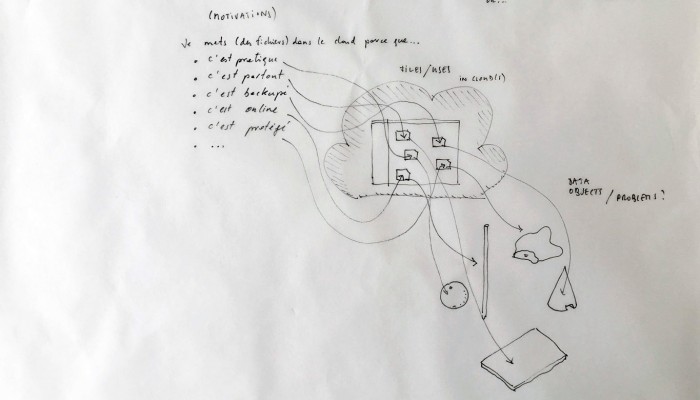 (MOTIVATIONS)
Je mets (des fichiers) dans le cloud parce que...
• c'est pratique
• c'est partout
• c'est backupé
• c'est online
• c'est protégé
• ...
FILES/USES
IN CLOUD(S)
DATA
OBJECTS / PROBLEMS?